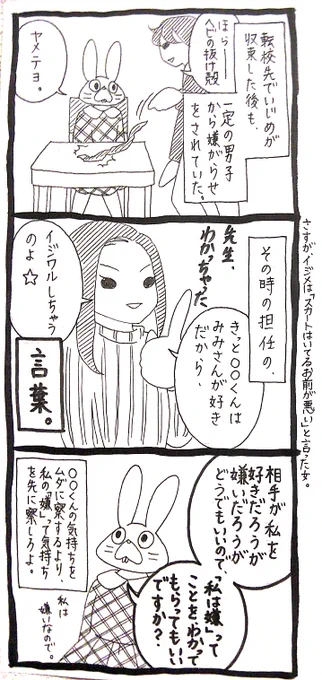 転校先でいじめが
収束した後も、
一定の男子
から嫌がらせ
をされていた。
ほらー
ヘビの抜け殻
ヤメテヨ。
その時の担任の、
先生、
わかっちゃった
きっと〇〇くんは
みみさんが好き
だから、
イジワルしちゃう
のよ☆
言葉。
さすが、イジメは「スカートはいてるお前が悪い」と言った女。
相手が私を
好きだろうが
嫌いだろうが
どうでもいいので、
「私は嫌」って
ことをわかって
もらってもいい
ですか?
〇〇くんの気持ちを
ムダに察するより、
私の「嫌」って気持ち
を先に察しろよ。
私は
嫌いなので。